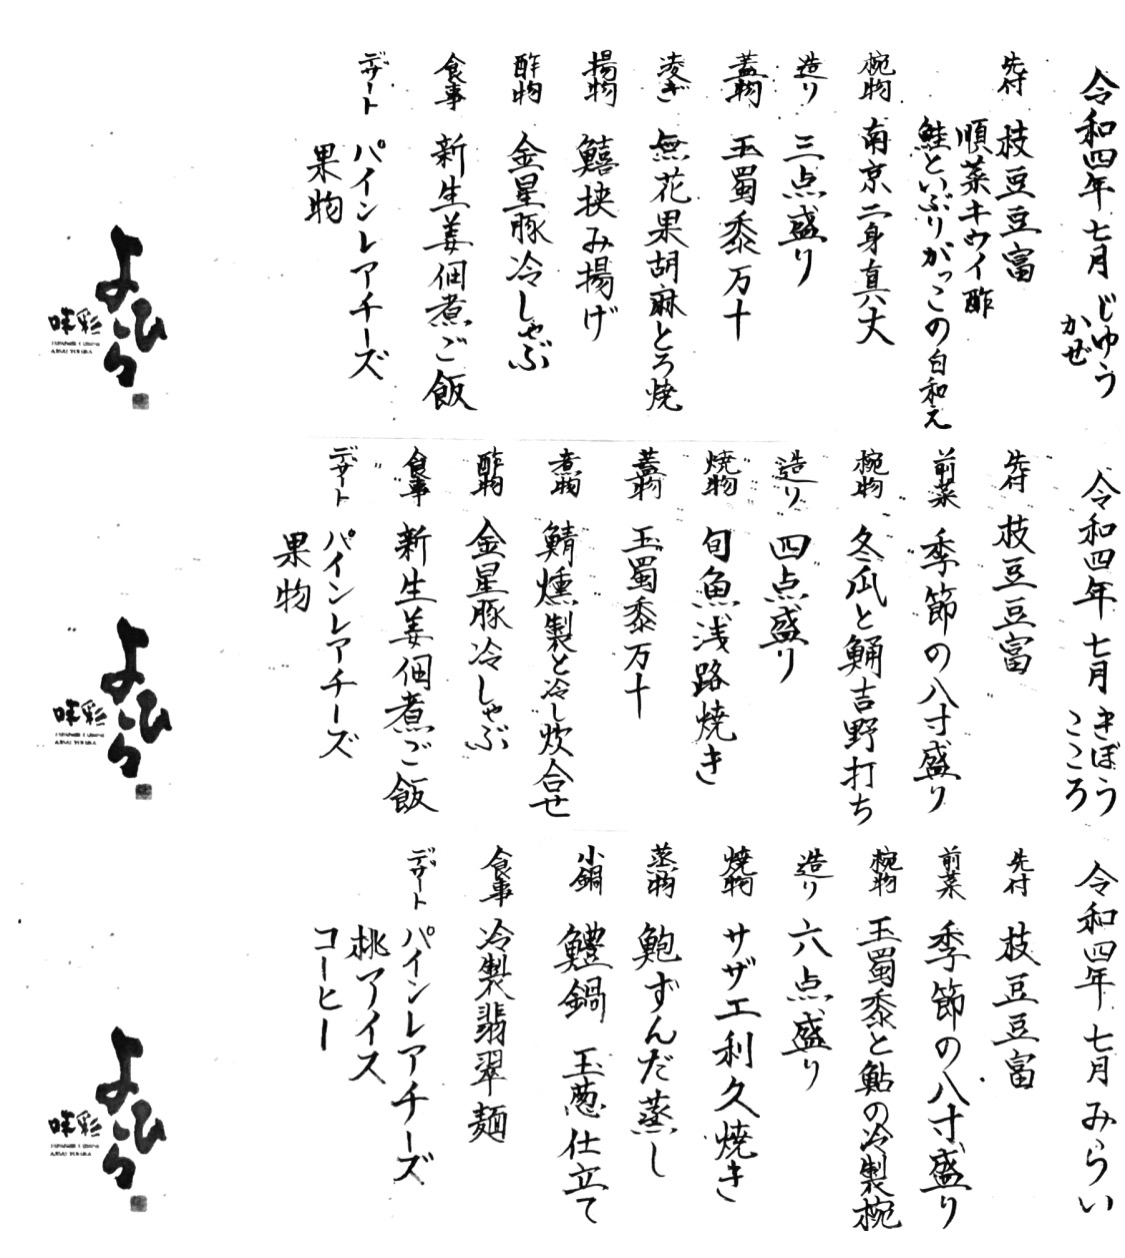 令和四年 七月 じゆうかぜ
先付 枝豆豆富
順菜キウイ酢
鮭といぶりがっこの白和え
椀物 南京二身真丈
造り 三点盛り
蓋物 玉蜀黍万十
凌ぎ 無花果胡麻とろ焼
揚物 鱚挟み揚げ
酢物 金星豚冷しゃぶ
食事 新生姜佃煮ご飯
デザート パインレアチーズ
果物
彩味 よひら
令和四年 七月 きぼうこころ
先付 枝豆豆富
前菜 季節の八寸盛り
椀物 冬瓜と鯒吉野打ち
造り 四点盛り
焼物 旬魚浅路焼き
蓋物 玉蜀黍万十
煮物 鯖燻製と冷し炊合せ
酢物 金星豚冷しゃぶ
食事 新生姜佃煮ご飯
デザート パインレアチーズ
果物
彩味 よひら
令和四年 七月 みらい
先付 枝豆豆富
前菜 季節の八寸盛り
椀物 玉蜀黍と鮎の冷製椀
造り 六点盛り
焼物 サザエ利久焼き
蒸物 鮑ずんだ蒸し
小鍋 鱧鍋 玉葱仕立て
食事 冷製翡翠麺
デザート パインレアチーズ
桃アイス
コーヒー
彩味 よひら